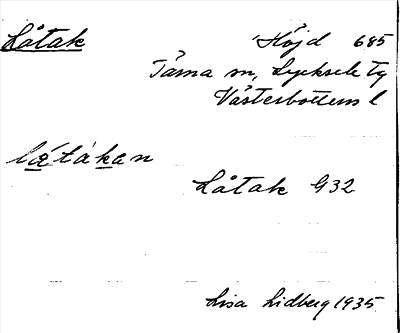 Låtak Höjd 685
Tärna sn, Lycksele tg
Västerbottens l
lǻtákan
Låtak G32
Lisa Lidberg 1935